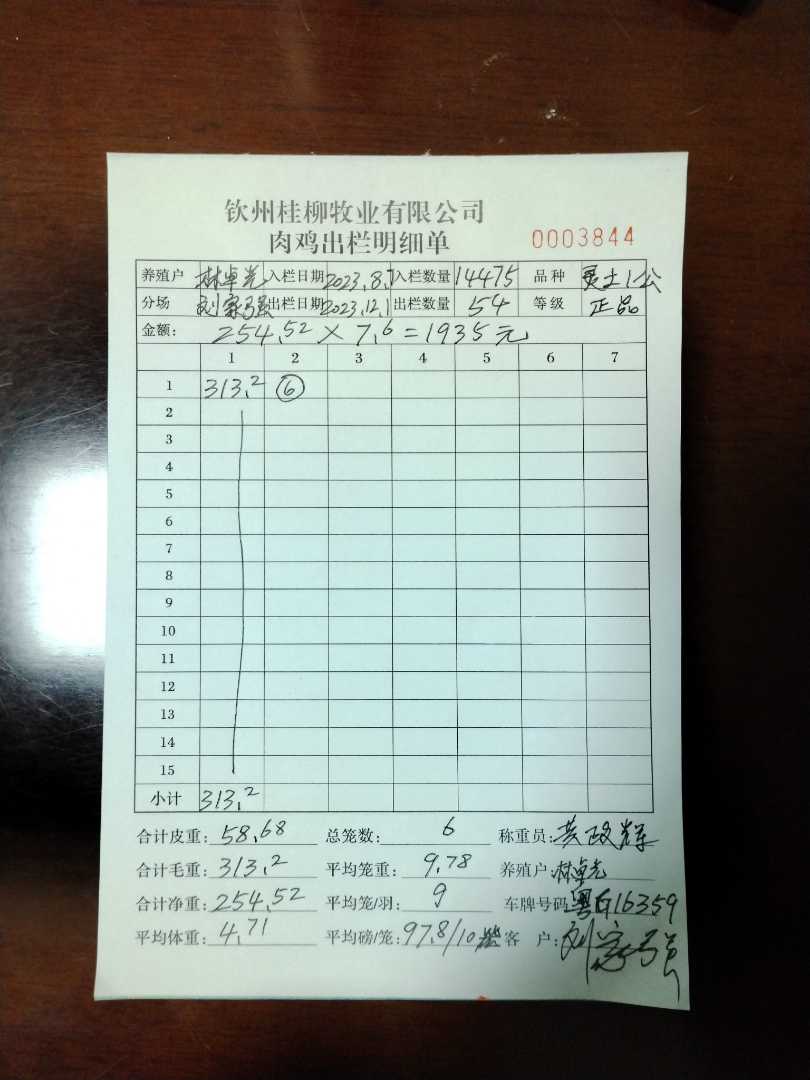 钦州桂柳牧业有限公司
肉鸡出栏明细单 0003844
养殖户 林卓光 入栏日期 2023.8.7 入栏数量 14475 品种 灵土1公
分场 刘家强 出栏日期 2023.12.1 出栏数量 54 等级 正品
金额: 254.52 × 7.6 = 1935元
1 2 3 4 5 6 7
1 313.2 ⑥
2
3
4
5
6
7
8
9
10
11
12
13
14
15
小计 313.2
合计皮重: 58.68 总笼数: 6 称重员: 黄政辉
合计毛重: 313.2 平均笼重: 9.78 养殖户: 林卓光
合计净重: 254.52 平均笼/羽: 9 车牌号码: 16359
平均体重: 4.71 平均磅/笼: 97.8/10 客户: 刘家强